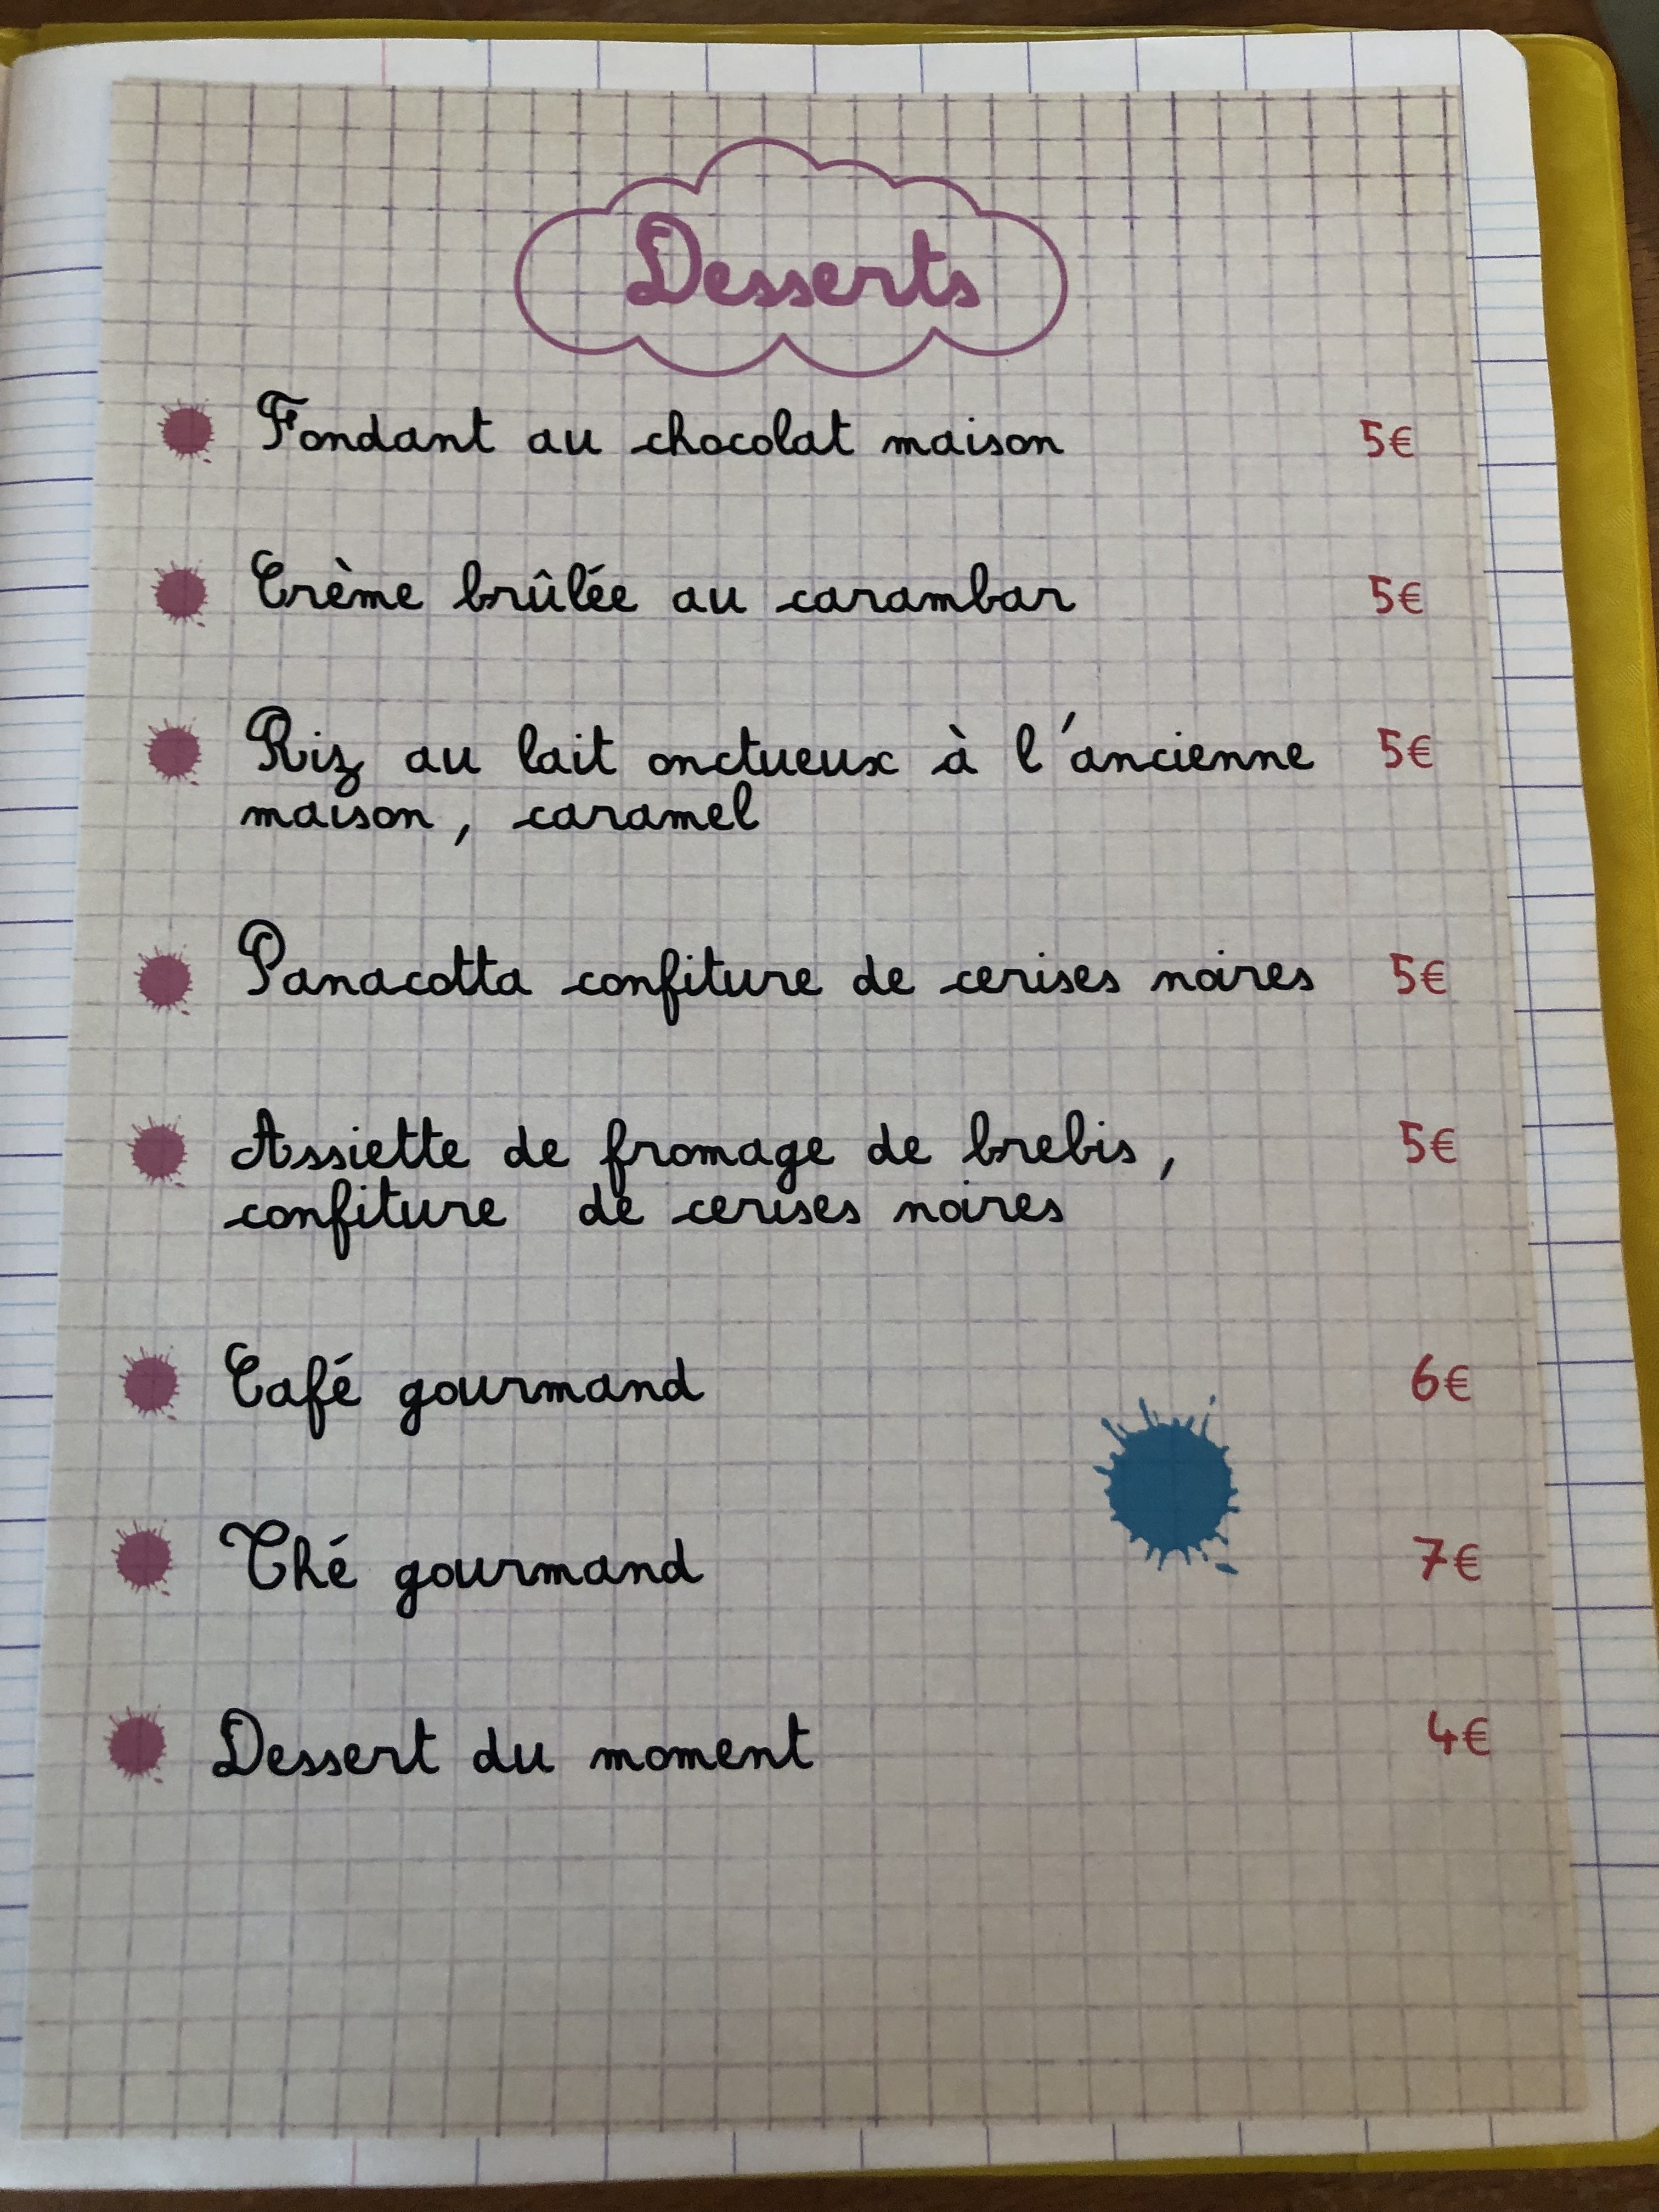 Desserts
Fondant au chocolat maison 5€
Crème brûlée au carambar 5€
Riz au lait onctueux à l'ancienne 5€
maison, caramel
Panacotta confiture de cerises noires 5€
Assiette de fromage de brebis, 5€
confiture de cerises noires
Café gourmand 6€
Thé gourmand 7€
Dessert du moment 4€